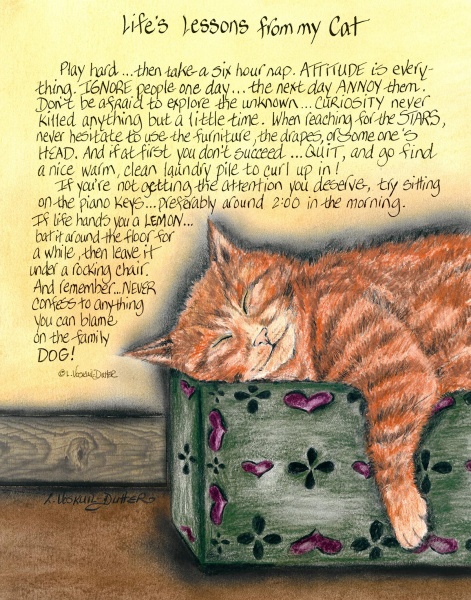 Life's Lessons from my Cat
Play hard...then take a six hour nap. ATTITUDE is every-
thing. IGNORE people one day...the next day ANNOY them.
Don't be afraid to explore the unknown...CURIOSITY never
killed anything but a little time. When reaching for the STARS,
never hesitate to use the furniture, the drapes, or some one's
HEAD. And if at first you don't succeed...QUIT, and go find
a nice warm, clean laundry pile to curl up in!
If you're not getting the attention you deserve, try sitting
on the piano keys...preferably around 2:00 in the morning.
If life hands you a LEMON...
bat it around the floor for
a while, then leave it
under a rocking chair.
And remember...NEVER
confess to anything
you can blame
on the family
DOG!
© L. Voskuil-Dutter
L. Voskuil-Dutter